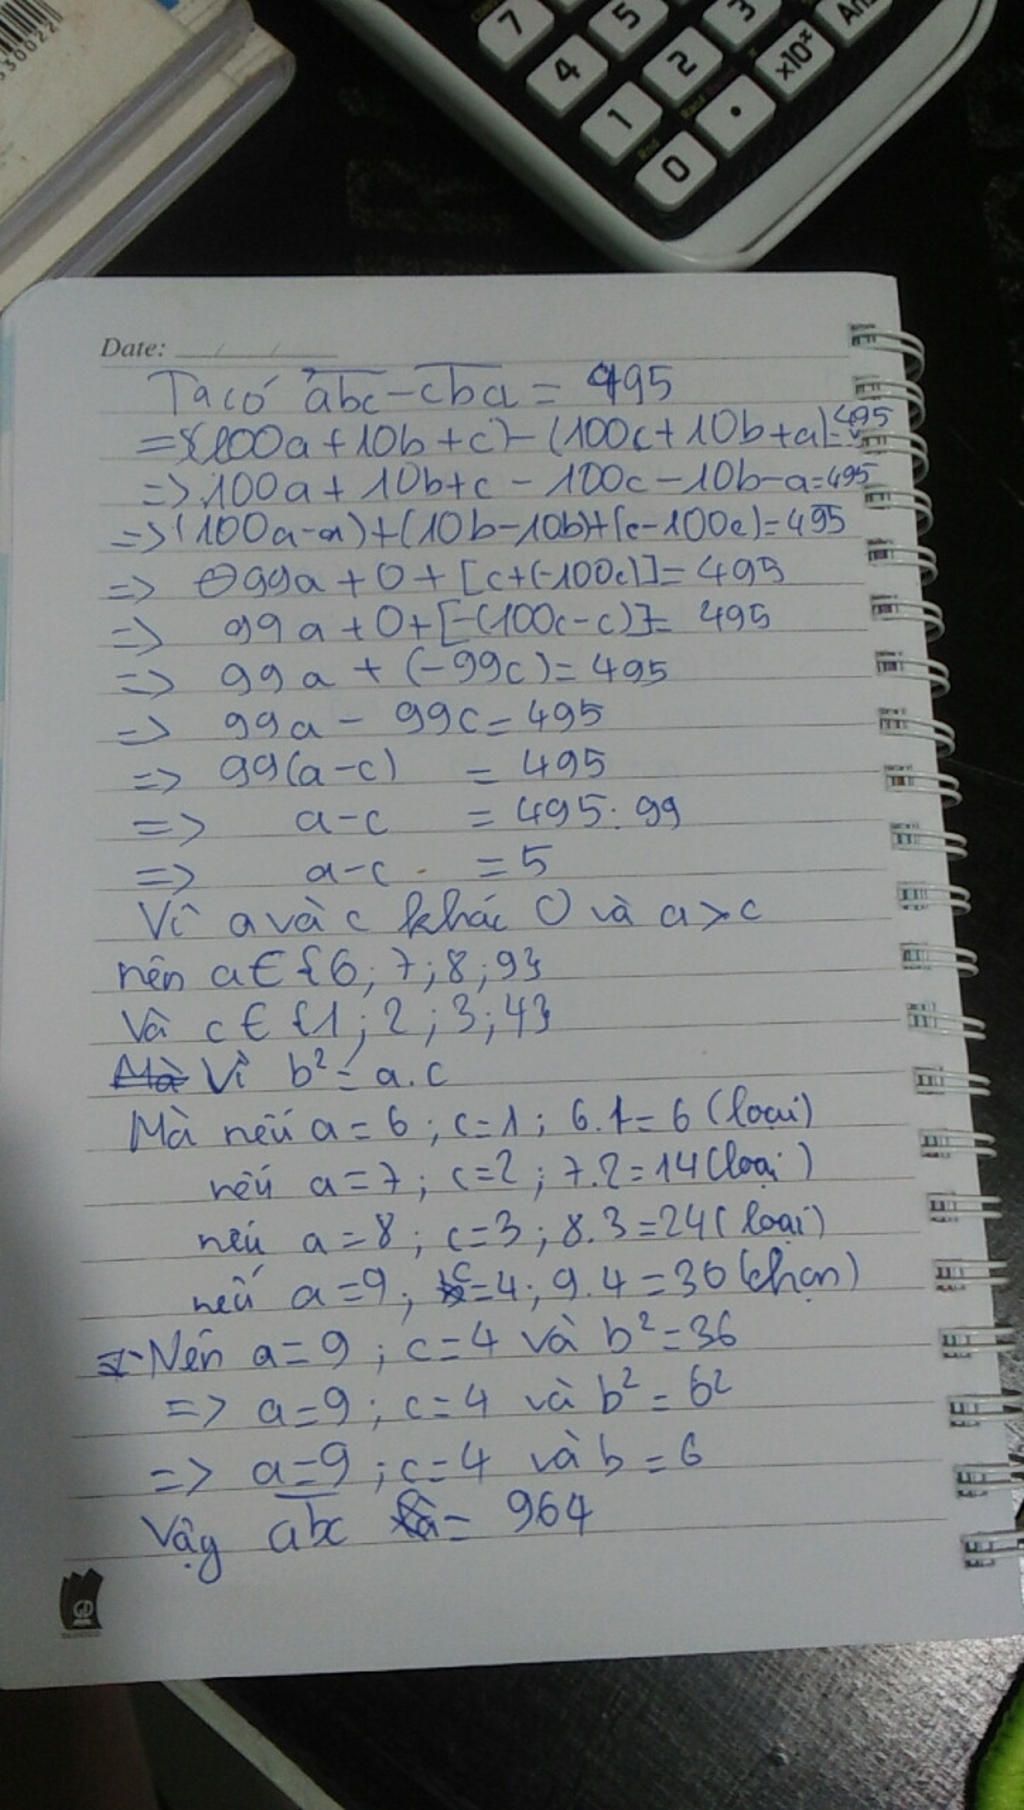 530022
7
4
5
1
2
3
0
.
×10ˣ
Ans
Rnd
Ran#
Date: __/__/__
Ta có abc - cba = 495
=> (100a + 10b + c) - (100c + 10b + a) = 495
=> 100a + 10b + c - 100c - 10b - a = 495
=> (100a - a) + (10b - 10b) + (c - 100c) = 495
=> 99a + 0 + [c + (-100c)] = 495
=> 99a + 0 + [-(100c - c)] = 495
=> 99a + (-99c) = 495
=> 99a - 99c = 495
=> 99(a - c) = 495
=> a - c = 495 : 99
=> a - c = 5
Vì a và c khác 0 và a > c
nên a ∈ {6; 7; 8; 9}
Và c ∈ {1; 2; 3; 4}
Mà Vì b² = a.c
Mà nếu a = 6; c = 1; 6.1 = 6 (loại)
nếu a = 7; c = 2; 7.2 = 14 (loại)
nếu a = 8; c = 3; 8.3 = 24 (loại)
nếu a = 9; c = 4; 9.4 = 36 (chọn)
Nên a = 9; c = 4 và b² = 36
=> a = 9; c = 4 và b² = 6²
=> a = 9; c = 4 và b = 6
Vậy abc = 964
GD